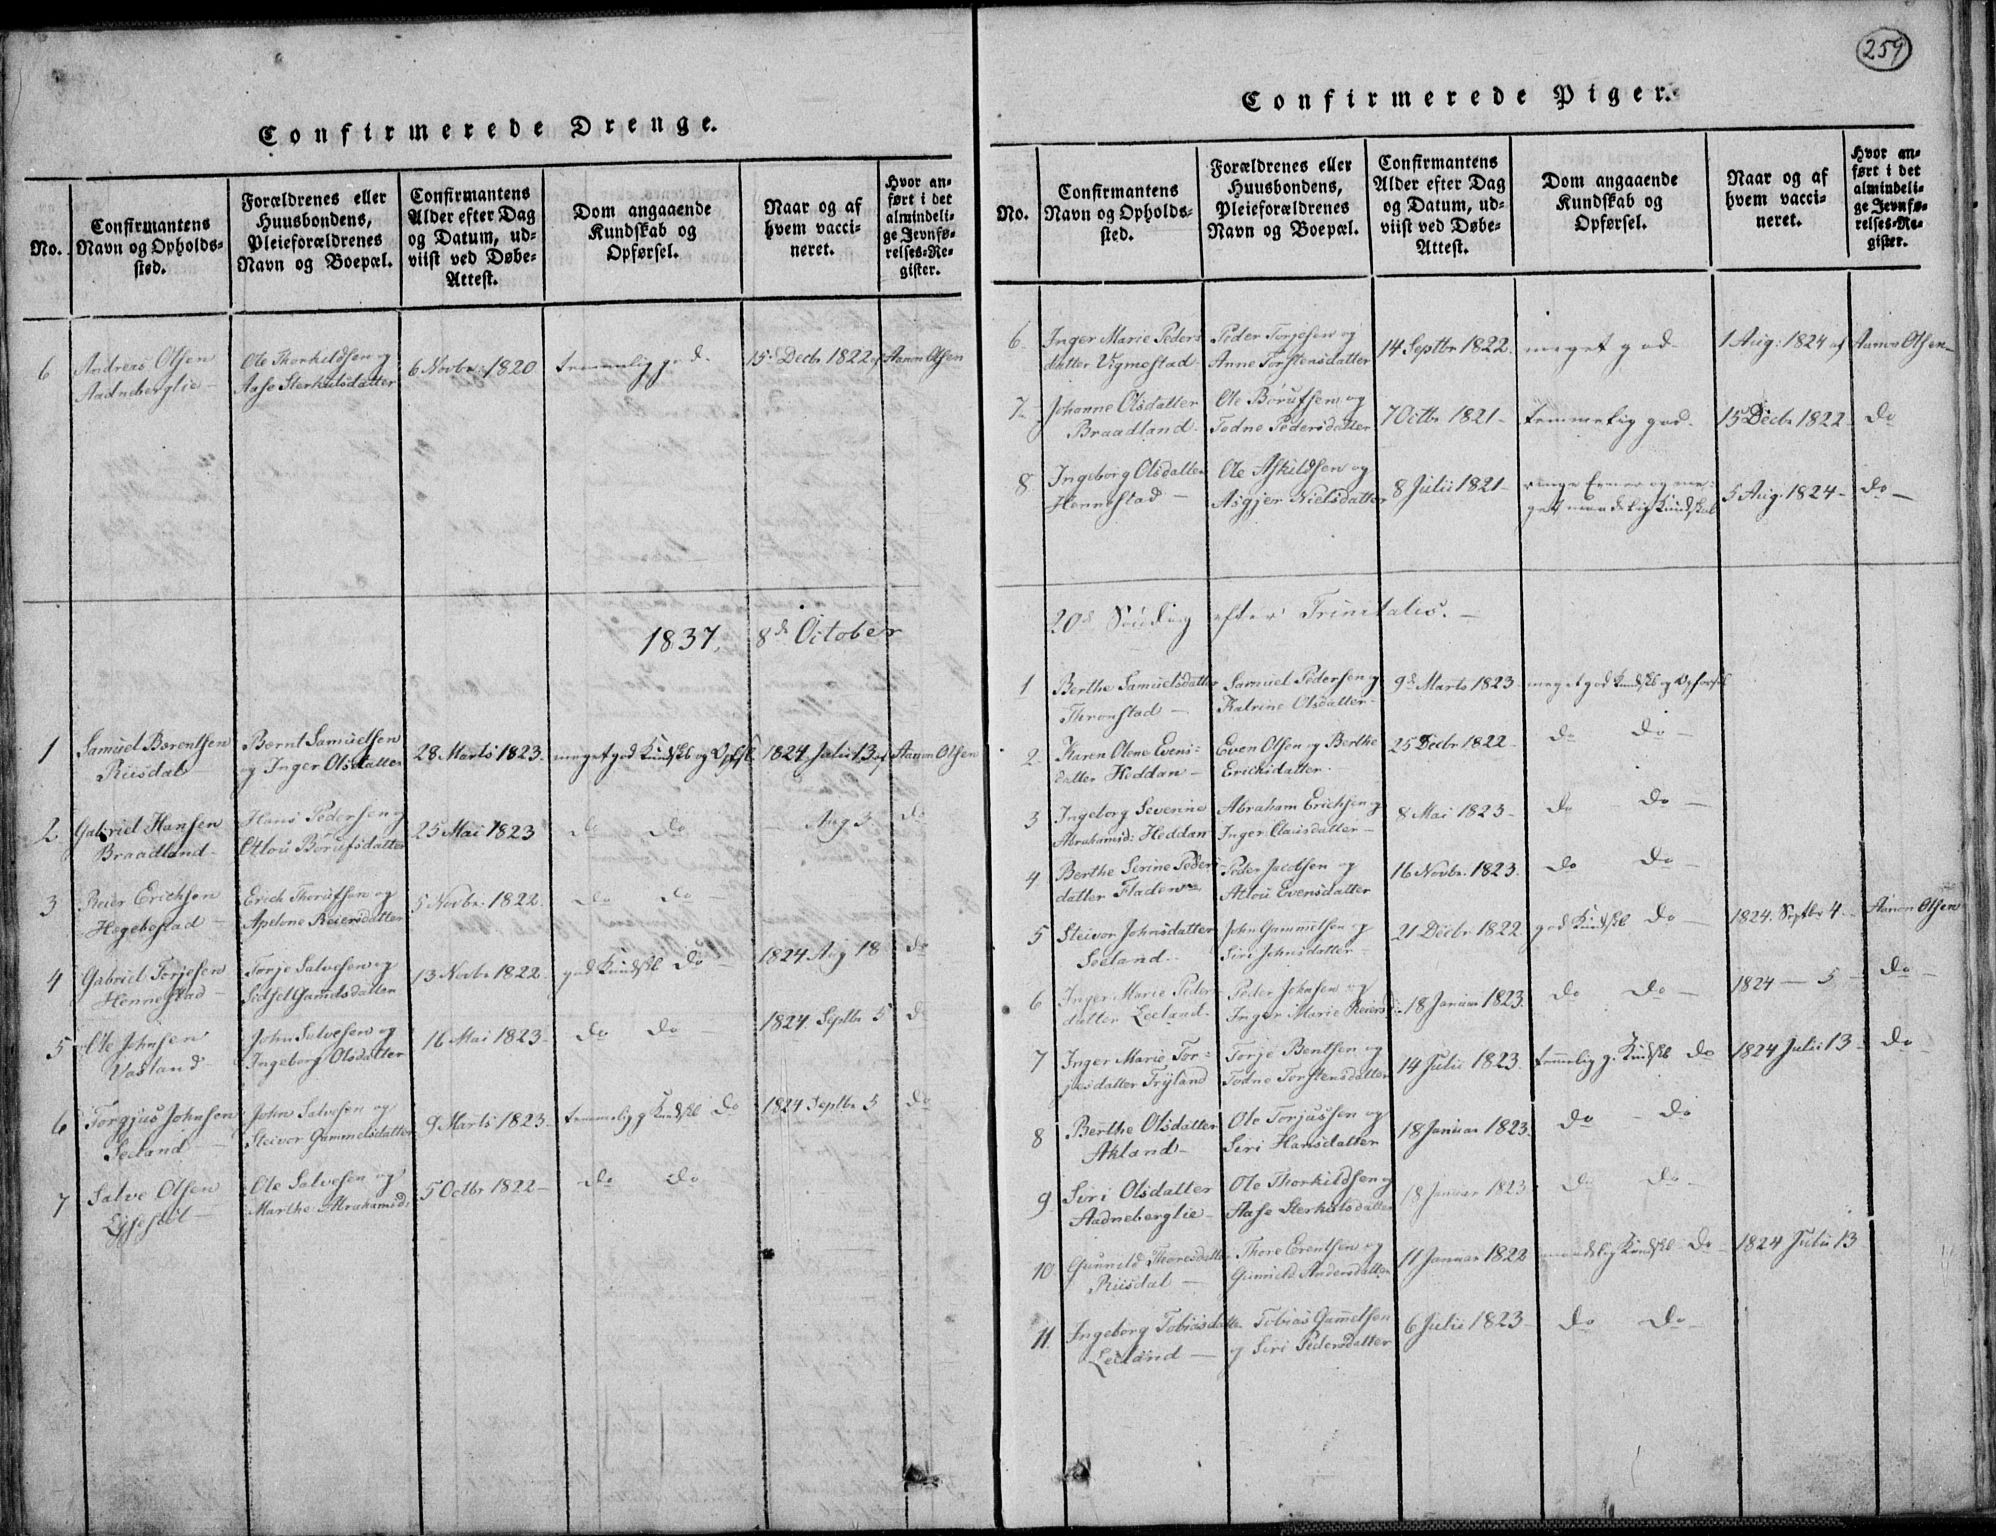 259
Confirmerede Drenge.
No.
Confirmantens
Navn og Opholds-
sted.
Forældrenes eller
Huusbondens,
Pleieforældrenes
Navn og Boepæl.
Confirmantens
Alder efter Dag
og Datum, ud-
viist ved Døbe-
Attest.
Dom angaaende
Kundskab og
Opførsel.
Naar og af
hvem vacci-
neret.
Hvor an-
ført i det
almindeli-
ge Jevnfø-
relses-Re-
gister.
6 Andreas Olsen Ole Thorkildsen og 6 Novbr. 1820 temmelig god. 15 Decbr 1822 af Aanon Olsen
Aadneberglie - Aase Sterkulsdatter
1837. 8de October
1 Samuel Berentsen Bernt Samuelsen 28 Marts 1823. meget god Kundskb og Opfsl. 1824 Julii 13 af Aanon Olsen
Riisdal - og Inger Olsdatter
2 Gabriel Hansen Hans Pedersen og 25 Mai 1823 do do - Aug 5 do
Braadland - Atlou Børufsdatter
3 Reier Erichsen Erich Thorufsen og 5 Novbr. 1822. do do -
Hegebostad - Apelone Reiersdatter
4 Gabriel Torjesen Torje Salvesen og 13 Novbr 1822. god Kundskb do - 1824 Aug 18 do
Hennestad - Sidsel Gamelsdatter
5 Ole Johnsen John Salvesen og 16 Mai 1823. do do - 1824 Septbr 5 do
Vasland Ingeborg Olsdatter
6 Torgjus Johnsen John Salvesen og 9 Marts 1823. temmelig g Kundskb do 1824 Septbr 5 do
Seeland - Steivor Gammelsdatter
7 Salve Olsen Ole Salvesen og 5 Octbr 1822 - do do
Marthe Abrahamsd:
Confirmerede Piger.
No.
Confirmantens
Navn og Opholds-
sted.
Forældrenes eller
Huusbondens,
Pleieforældrenes
Navn og Boepæl.
Confirmantens
Alder efter Dag
og Datum, ud-
viist ved Døbe-
Attest.
Dom angaaende
Kundskab og
Opførsel.
Naar og af
hvem vacci-
neret.
Hvor an-
ført i det
almindeli-
ge Jevnfø-
relses-Re-
gister.
6. Inger Marie Peders- Peder Torjesen og 14 Septbr 1822. meget god 1 Aug: 1824 af Aanon Olsen -
datter Vigmostad Anne Torstensdatter
7. Johanne Olsdatter Ole Børufsen og 7 Octbr 1821 - temmelig god - 15 Decbr 1822 - do
Braadland - Todne Pedersdatter
8 Ingeborg Olsdatter Ole Askildsen og 8 Julii 1821 - ringe Evner og me- 5 Aug. 1824 - do -
Hennestad - Asgjer Nielsdatter get maadelig Kundskab
20de Søndag efter Trinitatis. -
1 Berthe Samuelsdatter Samuel Pedersen og 9de Marts 1823 meget god Kundskb og Opførsel
Thronstad - Katrine Olsdatter -
2. Karen Olene Evens- Even Olsen og Berthe 25 Decbr 1822 - do do -
datter Heddan - Erichsdatter -
3 Ingeborg Severine Abraham Erichsen og 8 Mai 1823 - do do -
Abrahamsd: Heddan Inger Clausdatter -
4 Berthe Serine Peders- Peder Jacobsen og 16 Novbr. 1823. do do -
datter Fladen Atlou Evensdatter
5 Steivor Johnsdatter John Gammelsen og 21 Decbr 1822 god Kundskb do - 1824. Septbr 4 - Aanon Olsen
Seeland - Siri Johnsdatter -
6 Inger Marie Peders- Peder Johnsen og 18 Januar 1823. do do - 1824 - 5 - do -
datter Leeland - Inger Marie Reiersd:
7 Inger Marie Tor- Torje Bentsen og 14 Julii 1823. temmelig g. Kundskb do 1824 Julii 13 - do -
jesdatter Tryland Todne Torstensdatter
8 Berthe Olsdatter Ole Torjussen og 18 Januar 1823. do - do
Akland - Siri Hansdatter
9 Siri Olsdatter Ole Thorkildsen og 18 Januar 1823 do do -
Aadneberglie - Aase Sterkulsdatter
10 Gunnild Thoresdatter Thore Erentsen og 11 Januar 1822 maadelig Kundskb do - 1824 Julii 13
Riisdal - Gunnild Andersdatter
11. Ingeborg Tobiasdatter Tobias Gamelsen 6 Julii 1823 - do do -
Leeland - og Siri Pedersdatter